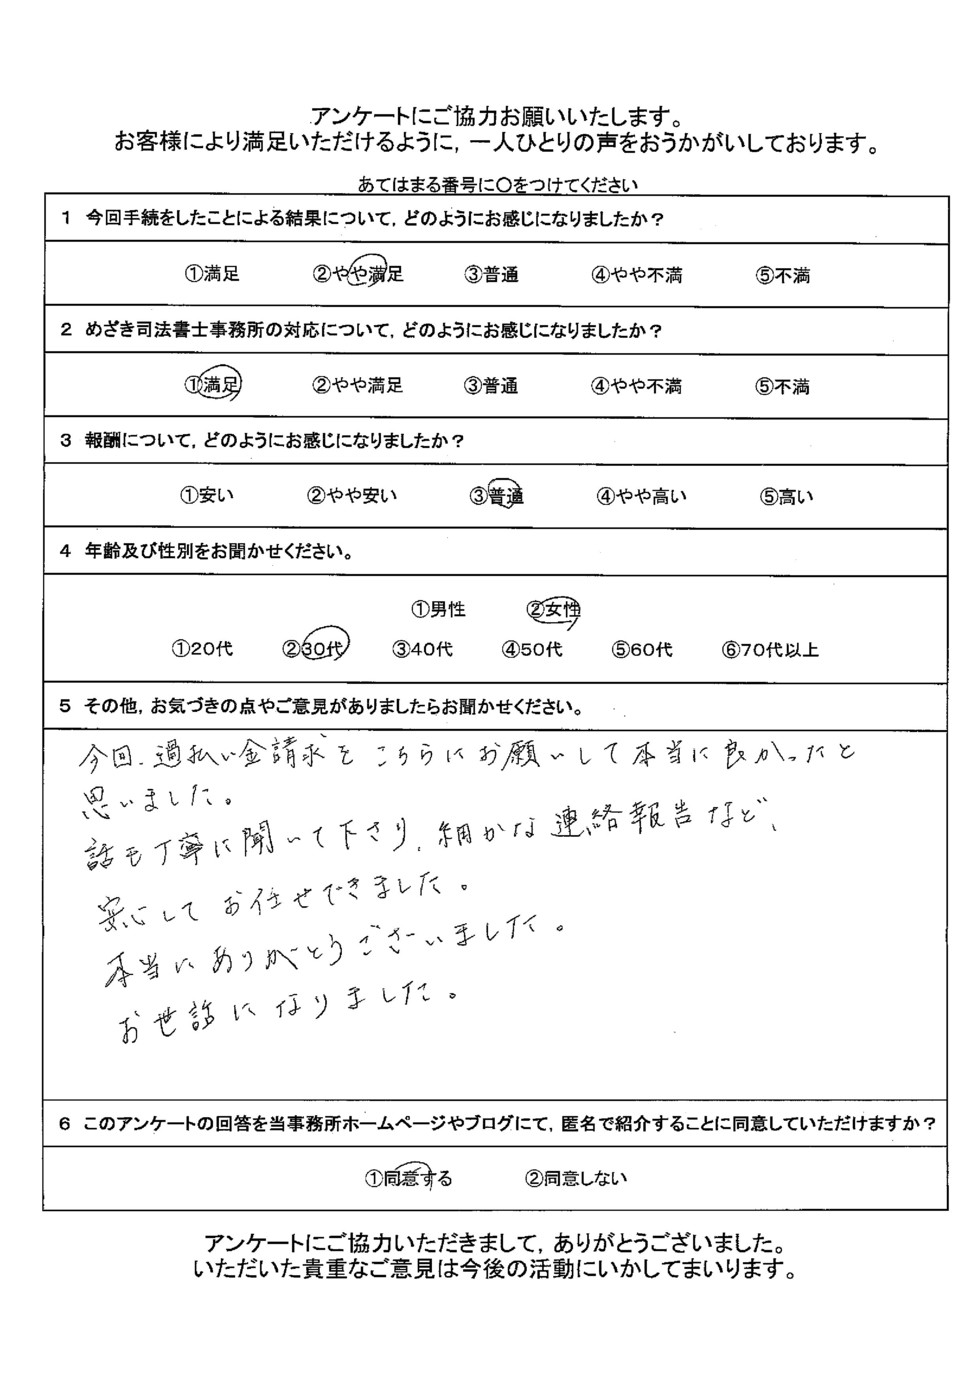 アンケートにご協力お願いいたします。
お客様により満足いただけるように，一人ひとりの声をおうかがいしております。
あてはまる番号に〇をつけてください
1 今回手続をしたことによる結果について，どのようにお感じになりましたか？
①満足 ②やや満足 ③普通 ④やや不満 ⑤不満
2 めざき司法書士事務所の対応について，どのようにお感じになりましたか？
①満足 ②やや満足 ③普通 ④やや不満 ⑤不満
3 報酬について，どのようにお感じになりましたか？
①安い ②やや安い ③普通 ④やや高い ⑤高い
4 年齢及び性別をお聞かせください。
①男性 ②女性
①20代 ②30代 ③40代 ④50代 ⑤60代 ⑥70代以上
5 その他，お気づきの点やご意見がありましたらお聞かせください。
今回、過払い金請求をこちらにお願いして本当に良かったと
思いました。
話も丁寧に聞いて下さり、細かな連絡報告など、
安心してお任せできました。
本当にありがとうございました。
お世話になりました。
6 このアンケートの回答を当事務所ホームページやブログにて，匿名で紹介することに同意していただけますか？
①同意する ②同意しない
アンケートにご協力いただきまして，ありがとうございました。
いただいた貴重なご意見は今後の活動にいかしてまいります。